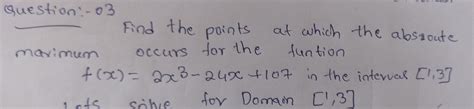 Question:-03
Find the points at which the absoute
maximum occurs for the funtion
f(x) = 2x³-24x+107 in the interval [1,3]
Lets solve for Domain [1,3]